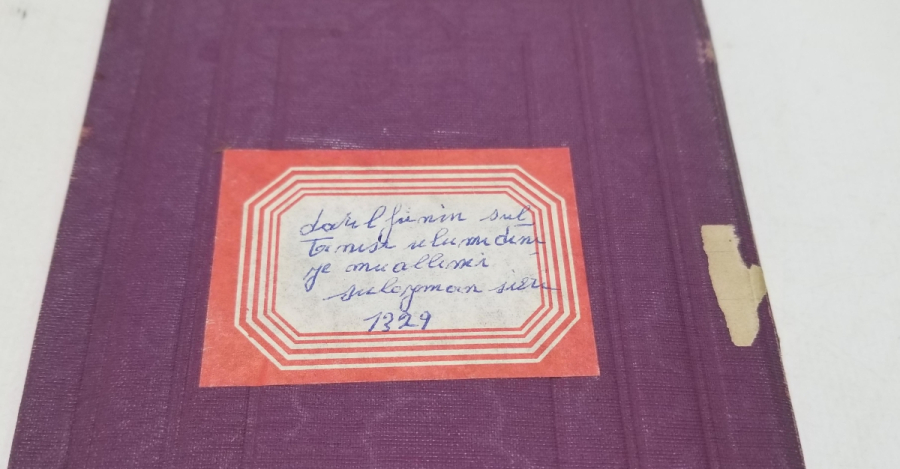 darülfünin sul
tanisi ulumi dini
ye muallimi
suleyman sırrı
1329